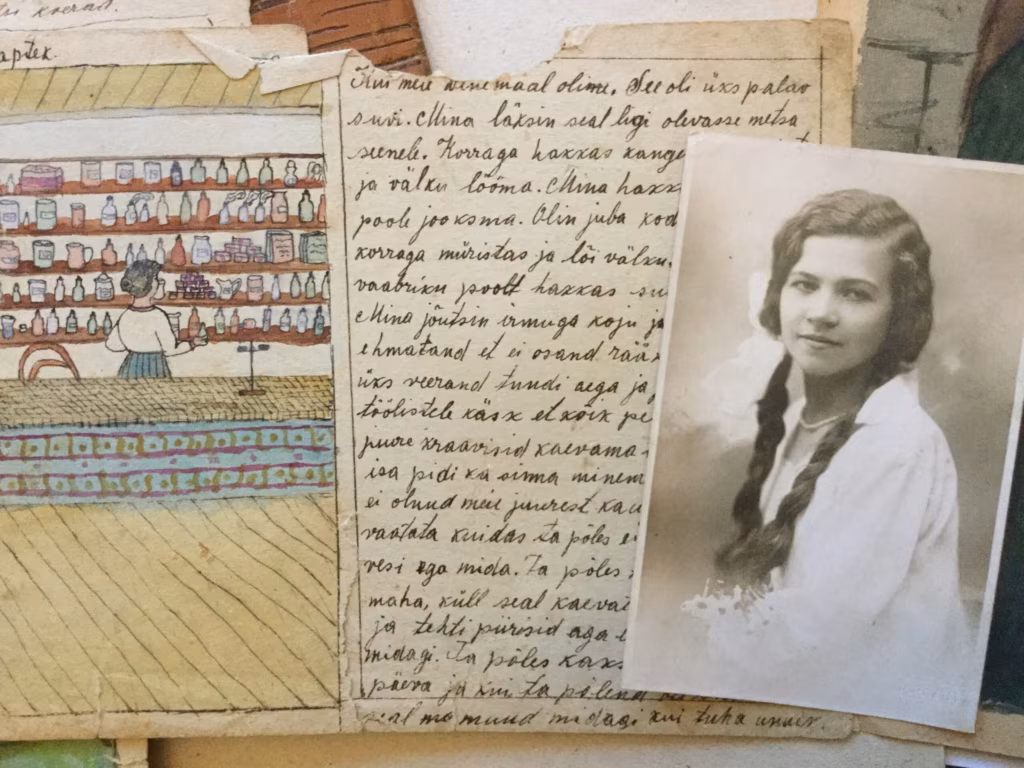 koerad.
aptek.
Kui meie wenemaal olime. See oli üks palav
suvi. Mina läksin seal ligi olevasse metsa
seenele. Korraga hakkas kange
ja välku lööma. Mina hakk
poole jooksma. Olin juba kod
korraga müristas ja lõi välku.
vaabriku poolt hakkas su
Mina jõutsin irmuga koju ja
ehmatand et ei osand rää
üks veerand tundi aega ja
töölistele käsk et kõik pe
juure kraavisid kaevama
isa pidi ka sinna minem
ei olnud meie juurest kau
vaatata kuidas ta põles ei
vesi ega mida. Ta põles
maha, küll seal kaevat
ja tehti piirisid aga e
midagi. Ta põles kaks
päeva ja kui ta põlend
seal ma muud midagi kui tuha unner.